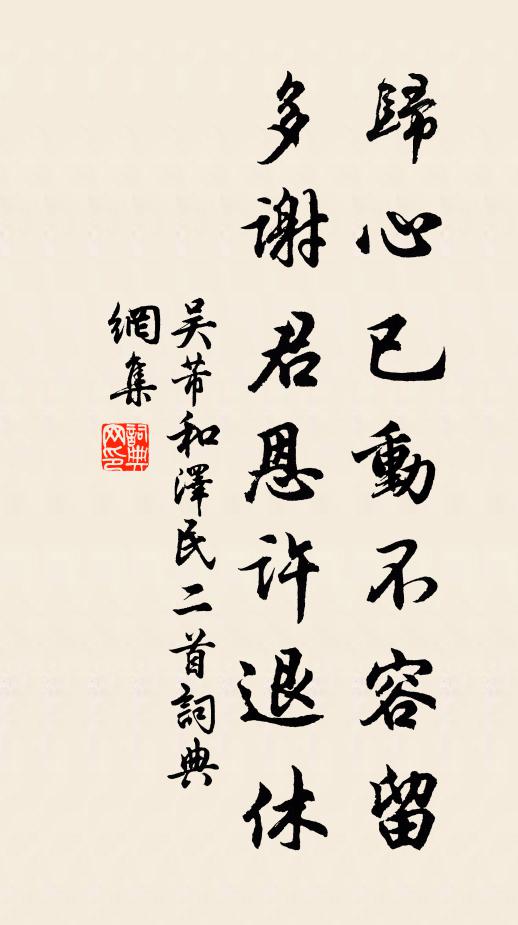 歸心已動不容留
多謝君恩許退休
吳芾和澤民二首詞典
網集
詞典
网印